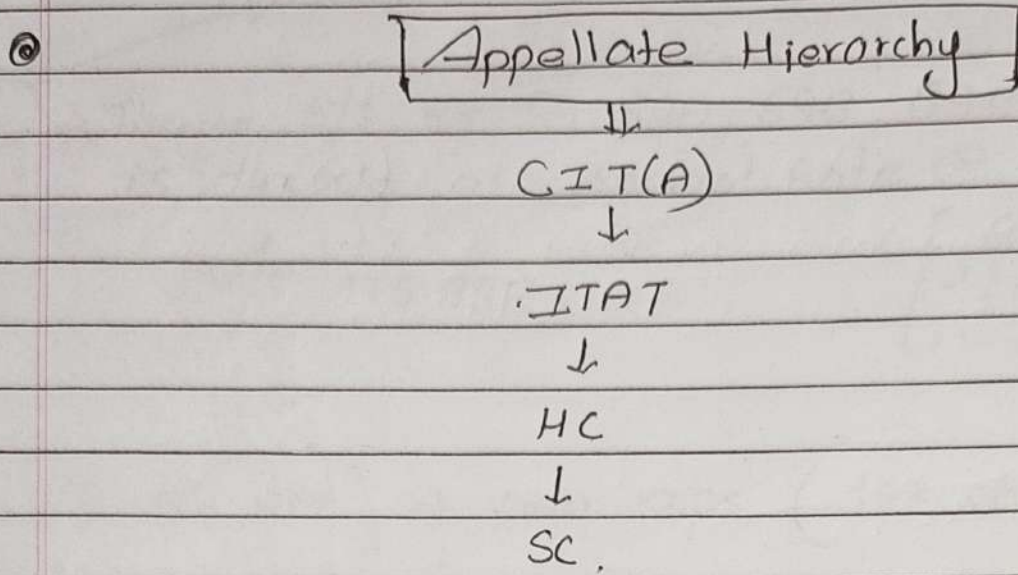 Appellate Hierarchy
⇓
CIT(A)
↓
ITAT
↓
HC
↓
SC.